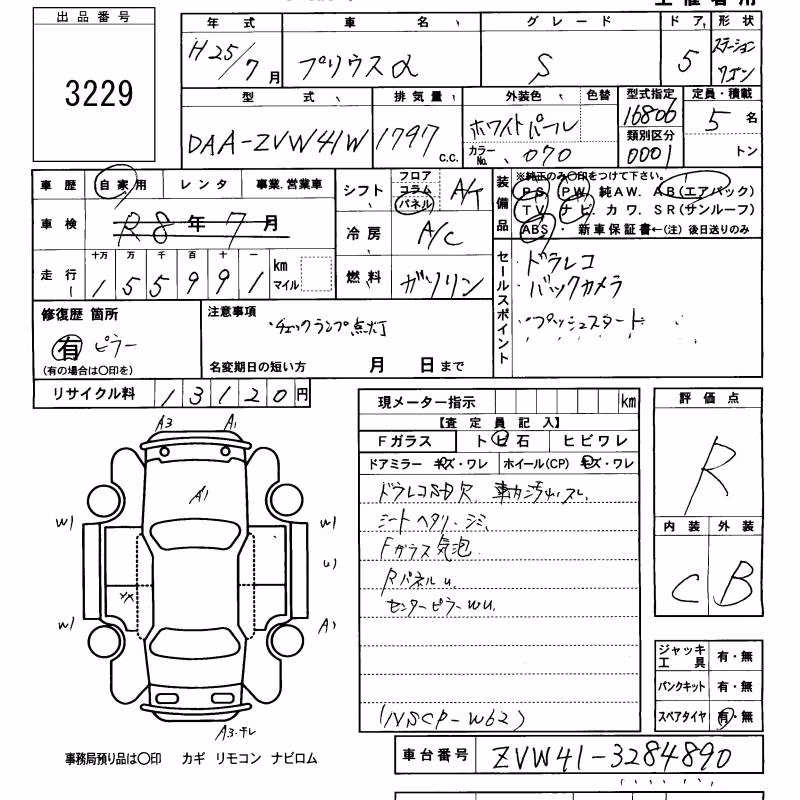 出品番号
3229
年式 車名 グレード ドア 形状
H25/7月 プリウスα S 5 ステーションワゴン
型式 排気量 外装色 色替 型式指定 定員・積載
DAA-ZVW41W 1797 c.c. ホワイトパール 16806 5名
カラーNo. 070 類別区分 0001 トン
車歴 自家用 レンタ 事業.営業車
車検 R8年7月
走行 十万 万 千 百 十 一 km マイル
155991
シフト フロア コラム パネル A/T
冷房 A/C
燃料 ガソリン
装備品 ※純正のみ○印をつけて下さい。
PS PW 純AW. AB(エアバック)
TV ナビ. カワ. SR(サンルーフ)
ABS ・ 新車保証書←(注)後日送りのみ
セールスポイント
ドラレコ
バックカメラ
プッシュスタート
修復歴 箇所
有 ピラー
(有の場合は○印を)
注意事項
チェックランプ点灯
名変期日の短い方 月 日まで
リサイクル料 13120円
現メーター指示 km
【査定員記入】
Fガラス トビ石 ヒビワレ
ドアミラー キズ・ワレ ホイール(CP) キズ・ワレ
ドラレコSD欠 車内汚れ.スレ.
シート ヘタリ・シミ.
Fガラス気泡.
Rパネルu.
センターピラーwu.
(NSCP-W62)
評価点
R
内装 外装
C B
ジャッキ工具 有・無
パンクキット 有・無
スペアタイヤ 有・無
A3 A1
A1
W1 W1
U1
YX
W1 A1
A3.キレ
事務局預り品は○印 カギ リモコン ナビロム
車台番号 ZVW41-3284890